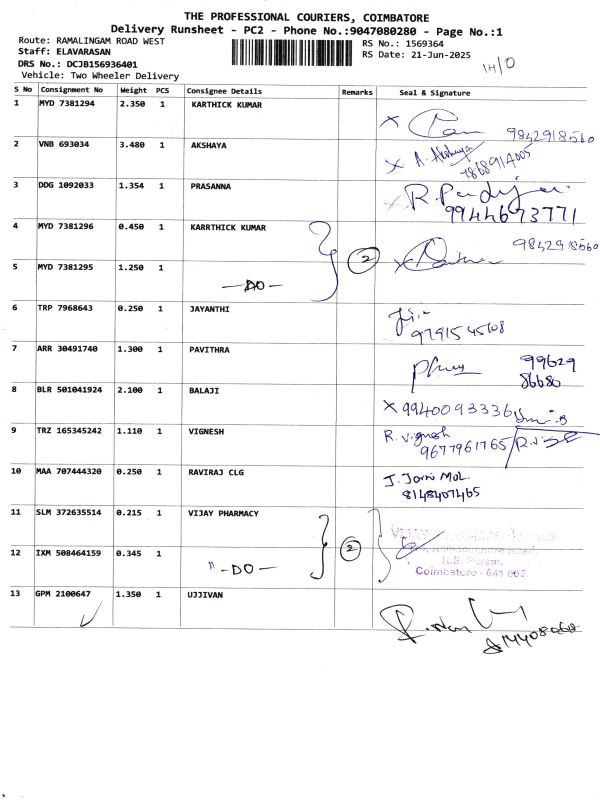 THE PROFESSIONAL COURIERS, COIMBATORE
Delivery Runsheet - PC2 - Phone No.:9047080280 - Page No.:1
Route: RAMALINGAM ROAD WEST
RS No.: 1569364
Staff: ELAVARASAN
RS Date: 21-Jun-2025
DRS No.: DCJB156936401
Vehicle: Two Wheeler Delivery
S No Consignment No Weight PCS Consignee Details Remarks Seal & Signature
1 MYD 7381294 2.350 1 KARTHICK KUMAR
9842918560
2 VNB 693034 3.480 1 AKSHAYA
A. Akshaya
7868914005
3 DDG 1092033 1.354 1 PRASANNA
9944673771
4 MYD 7381296 0.450 1 KARRTHICK KUMAR
9842918560
2
5 MYD 7381295 1.250 1
—DO—
6 TRP 7968643 0.250 1 JAYANTHI
7 ARR 30491740 1.300 1 PAVITHRA
99629
86680
8 BLR 501041924 2.100 1 BALAJI
X 9940093336
9 TRZ 165345242 1.110 1 VIGNESH
R. Vignesh
9677961765
10 MAA 707444320 0.250 1 RAVIRAJ CLG
J. Jomi Mol.
8148407465
11 SLM 372635514 0.215 1 VIJAY PHARMACY
2
12 IXM 508464159 0.345 1
" -DO—
Coimbatore - 641 002
13 GPM 2100647 1.350 1 UJJIVAN